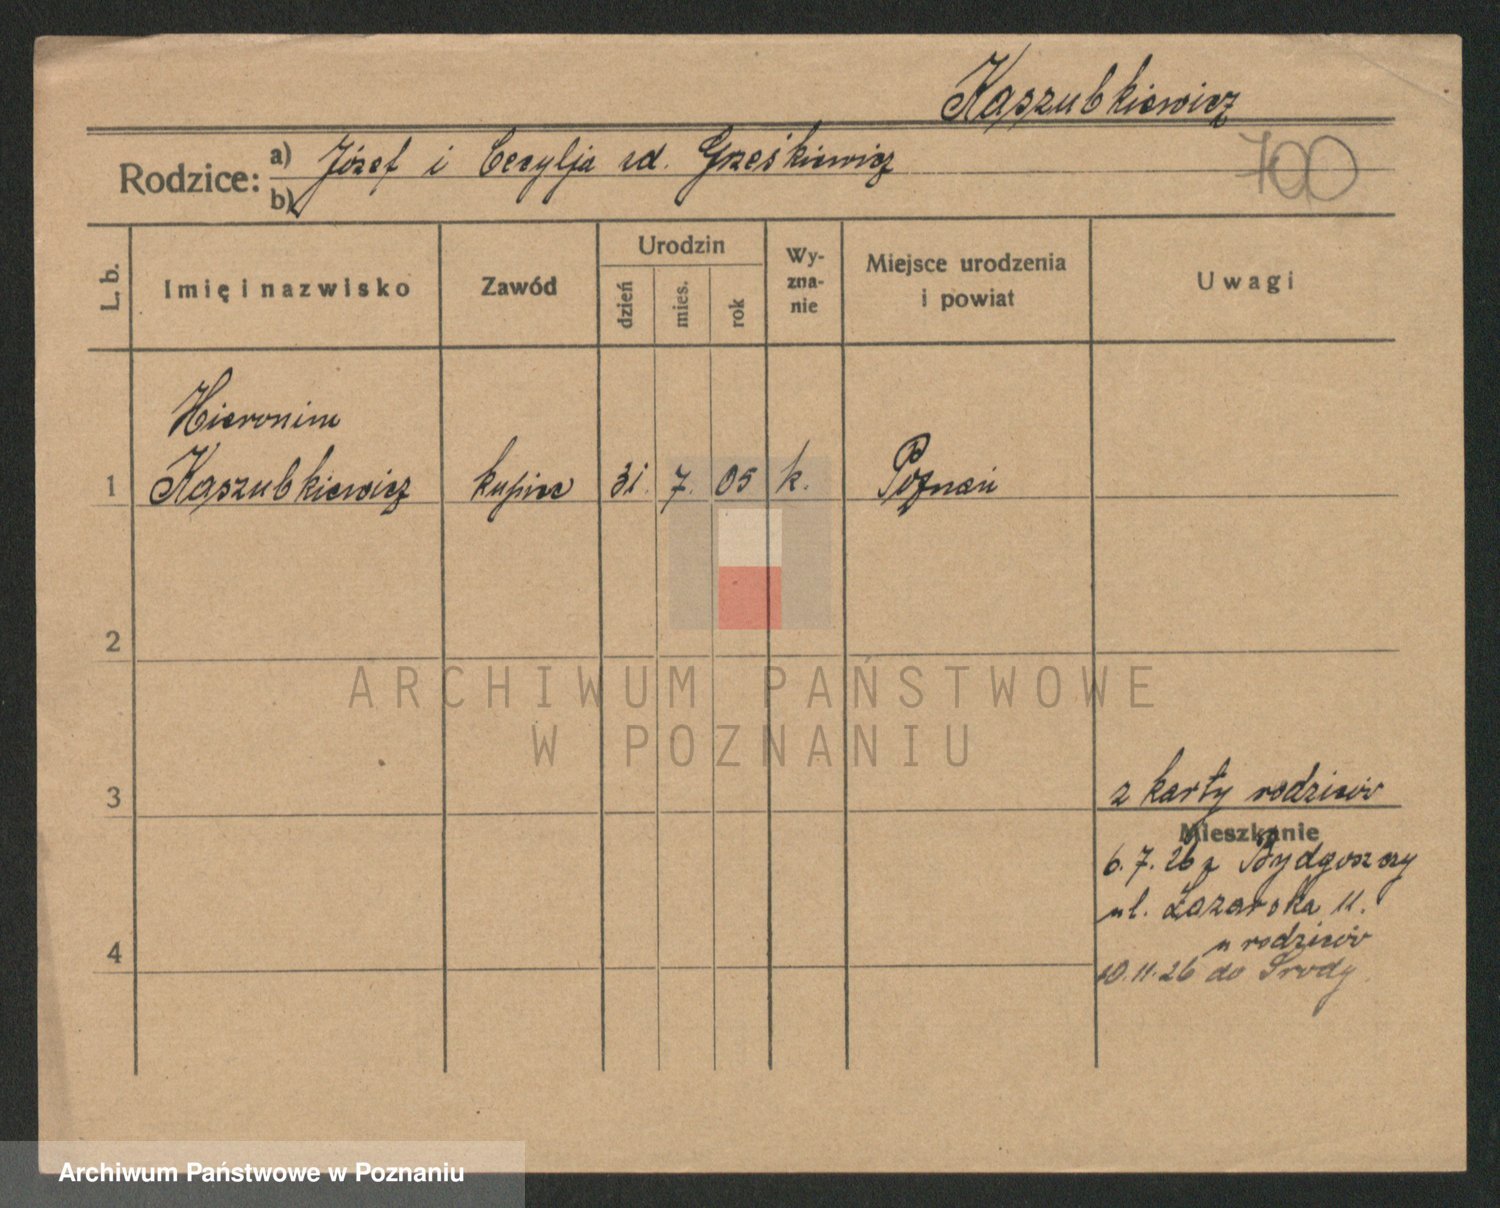 Kaszubkiewicz
700
Rodzice: a) Józef i Cecylja zd. Grześkiewicz
b)
L. b.
Imię i nazwisko
Zawód
Urodzin
dzień
mies.
rok
Wy-
zna-
nie
Miejsce urodzenia
i powiat
Uwagi
Hieronim
1 Kaszubkiewicz kupiec 31. 7. 05 k. Poznań
2
ARCHIWUM PAŃSTWOWE
W POZNANIU
3 z karty rodziców
Mieszkanie
6.7.26 z Bydgoszczy
ul. Łazarska 11.
u rodziców
4 10.11.26 do Środy
Archiwum Państwowe w Poznaniu